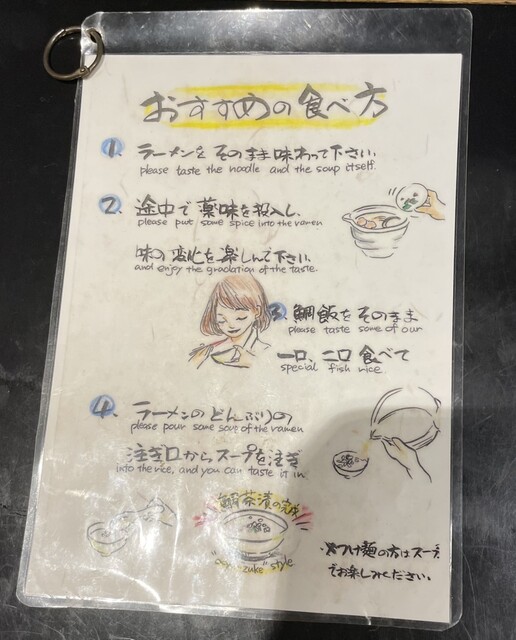 おすすめの食べ方
1. ラーメンをそのまま味わって下さい。
please taste the noodle and the soup itself.
2. 途中で薬味を投入し、
please put some spice into the ramen
味の変化を楽しんで下さい。
and enjoy the gradation of the taste.
3. 鯛飯をそのまま
please taste some of our
一口、二口食べて
special fish rice
4. ラーメンのどんぶりの
please pour some soup of the ramen
注ぎ口からスープを注ぎ
into the rice, and you can taste it in
鯛茶漬の完成
style
つけ麺の方はスープ
でお楽しみください。